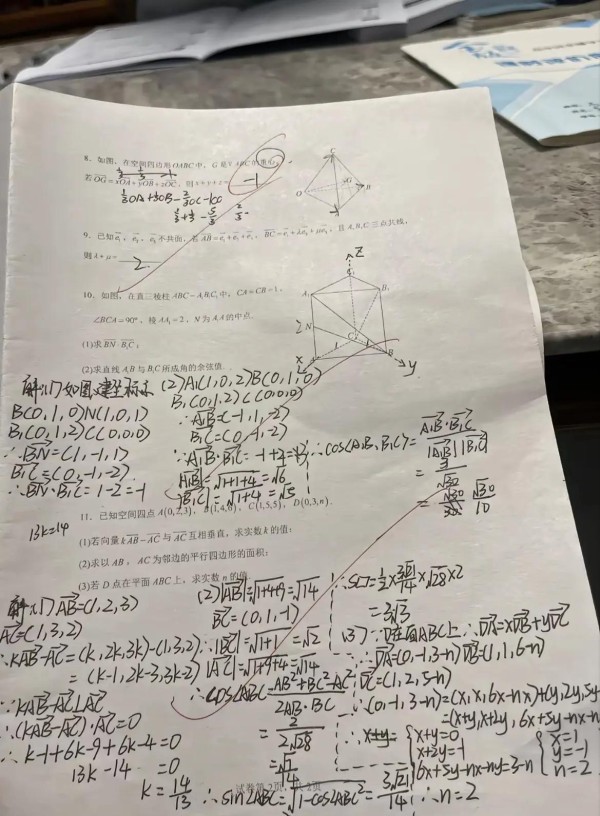 8. 如图, 在空间四边形 OABC 中, G 是▽ABC 的重心,
若 OG = xOA + yOB + zOC, 则 x+y+z = -1
9. 已知 e₁, e₂, e₃ 不共面, 若 AB = e₁+e₂+e₃, BC = e₁+λe₂+μe₃, 且 A, B, C 三点共线,
则 λ+μ= 2
10. 如图, 在直三棱柱 ABC-A₁B₁C₁ 中, CA=CB=1,
∠BCA=90°, 棱 AA₁=2, N 为 A₁A 的中点.
(1)求 BN·B₁C;
(2)求直线 A₁B 与 B₁C 所成角的余弦值.
解:(1)如图建坐标系
B(0,1,0)N(1,0,1)
B₁(0,1,2)C(0,0,0)
∴BN=(1,-1,1)
B₁C=(0,-1,-2)
∴BN·B₁C=1-2=-1
(2)A₁(1,0,2)B(0,1,0)
B₁(0,1,2)C(0,0,0)
∴A₁B=(-1,1,-2)
B₁C=(0,-1,-2)
∴A₁B·B₁C=-1+4=3
|A₁B|=√1+1+4=√6
|B₁C|=√1+4=√5
∴cos(A₁B,B₁C)=A₁B·B₁C/|A₁B||B₁C|
=3/√30
=√30/10
11. 已知空间四点 A(0,2,3), B(1,4,6), C(1,5,5), D(0,3,n).
13k=14
(1)若向量 kAB-AC 与 AC 互相垂直, 求实数 k 的值;
(2)求以 AB, AC 为邻边的平行四边形的面积;
(3)若 D 点在平面 ABC 上, 求实数 n 的值.
解:(1)AB=(1,2,3)
AC=(1,3,2)
∴kAB-AC=(k,2k,3k)-(1,3,2)
=(k-1,2k-3,3k-2)
∵kAB-AC⊥AC
∴(kAB-AC)·AC=0
∴k-1+6k-9+6k-4=0
13k-14=0
k=14/13
(2)|AB|=√1+4+9=√14
BC=(0,1,-1)
∴|BC|=√1+1=√2
|AC|=√1+9+4=√14
∴cos∠ABC=AB²+BC²-AC²/2AB·BC
=2/2√28
=√7/14
∴sin∠ABC=√1-cos∠ABC²=3√21/14
∴S□=1/2×3√21/14×√28×2
=3√3
(3)∵D在面ABC上∴DA=xDB+yDC
∴DA=(0,-1,3-n)DB=(1,1,6-n)
DC=(1,2,5-n)
∴(0,-1,3-n)=(x,x,6x-nx)+(y,2y,5y-
=(x+y,x+2y,6x+5y-nx-n
x+y=0
x+2y=-1
6x+5y-nx-ny=3-n
x=1
y=-1
n=2
∴n=2
试卷第2页, 共2页